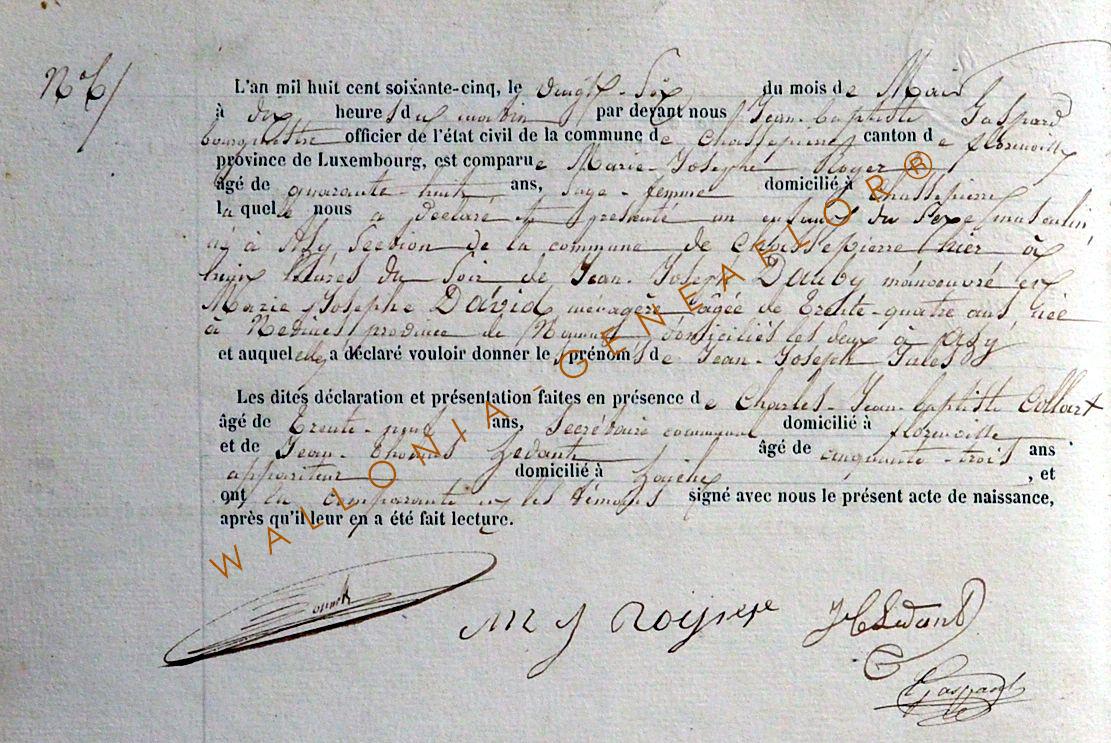 L'an mil huit cent soixante-cinq, le vingt-six du mois de Mai
à dix heures du matin par devant nous Jean-baptiste Gaspard
bourgmestre officier de l'état civil de la commune de chassepierre canton de florenville
province de Luxembourg, est comparue Marie-Josephe Royer
âgé de quarante-huit ans, sage-femme domicilié à Chassepierre
laquelle nous a déclaré et présenté un enfant du sexe masculin,
né à Azy section de la commune de Chassepierre hier à
huit heures du soir de Jean-Joseph Dauby manoeuvre et
Marie Josephe David ménagère âgée de trente-quatre ans née
à province de Namur domiciliés les deux à Azy
et auquel elle a déclaré vouloir donner les prénoms de Jean-Joseph Jules
Les dites déclaration et présentation faites en présence de Charles-Jean-baptiste Collart
âgé de trente-neuf ans, Secrétaire communal domicilié à florenville
et de Jean-thomas Ledant âgé de cinquante-trois ans
appariteur domicilié à , et
ont la comparante et les témoins signé avec nous le présent acte de naissance,
après qu'il leur en a été fait lecture.
M J Royer JTLedant
Gaspard
WALLONIA-GENEAFLOR®